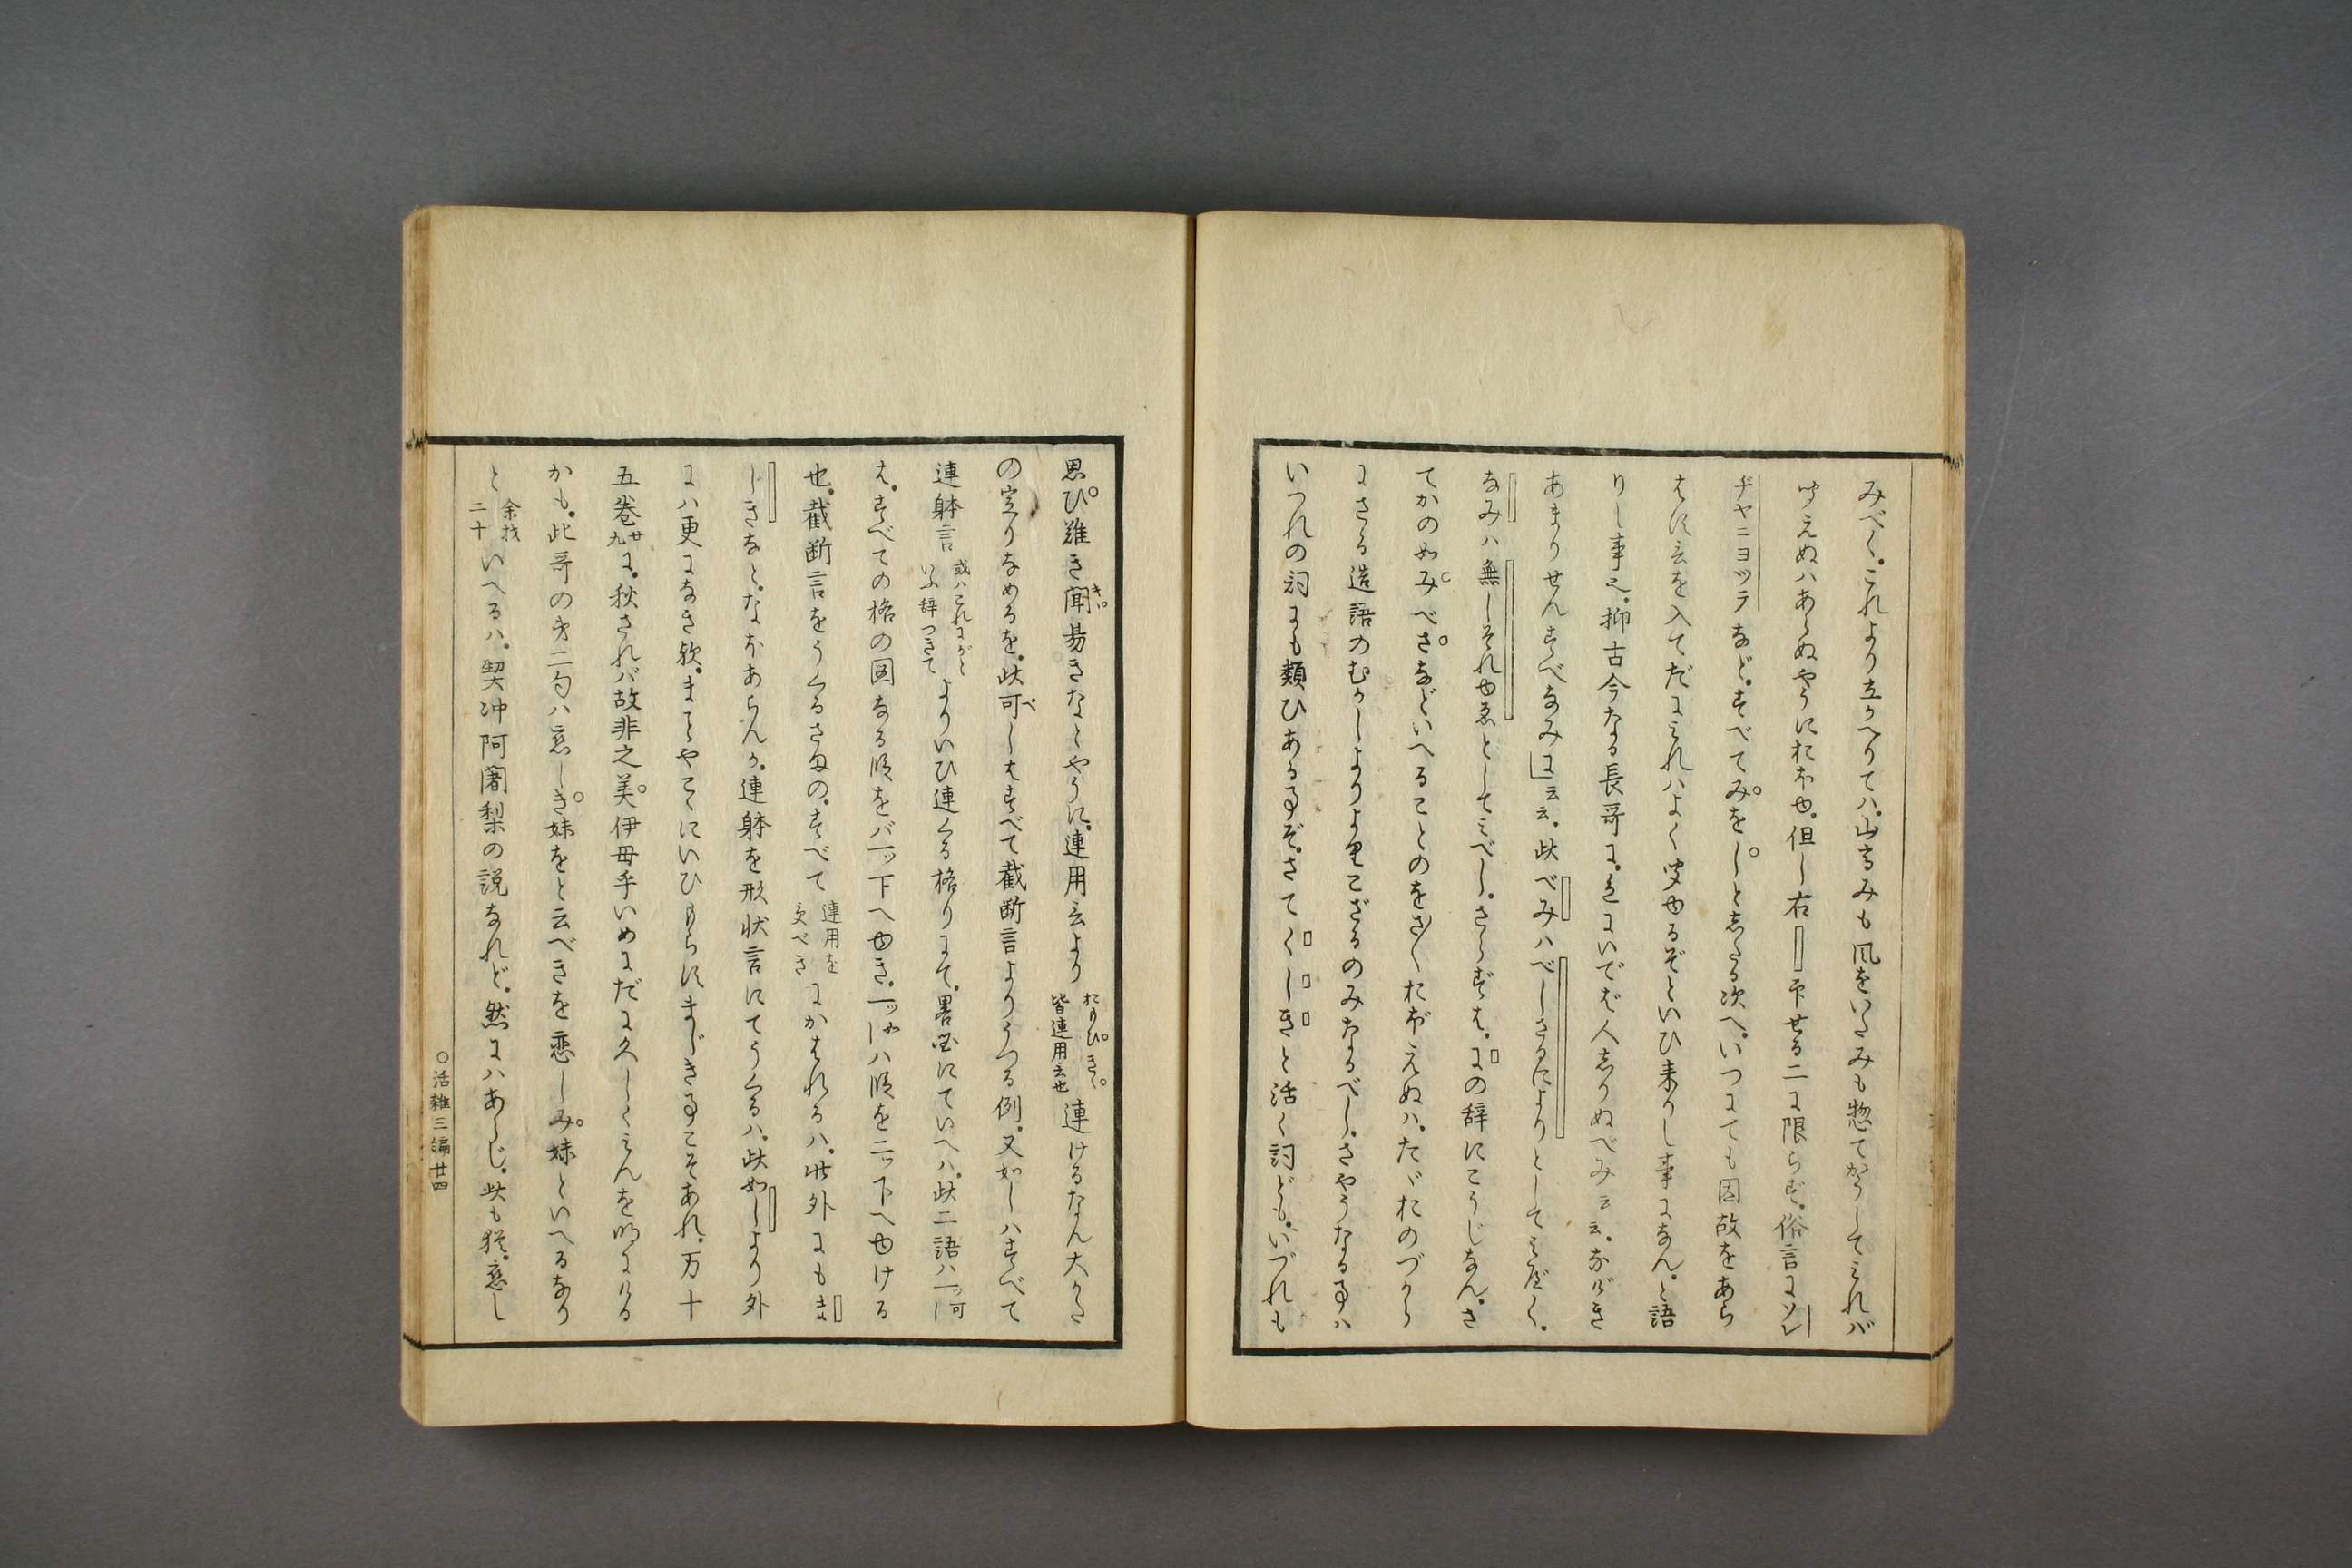 みべく。これより立かへりては。山高みも風をいたみも惣てかうしてみれバ
ゆえぬハあらぬやうにおぼゆ。但し右 印せる二に限らず。俗言にソレ
ヂヤニヨツテなど。すべてみをしと志たる次へ。いつにても因故をあら
はす言を入てだにみれハよく聞ゆるぞといひ来りし事になん。と語
りし事也。抑古今なる長哥に。色にいでば人志りぬべみ云云。なげき
あまりせんすべなみに」云云。此べみハべしさるによりとしてみべく。
なみハ無しそれゆゑとしてみべし。さらずは。にの辞にこうじなん。さ
てかのめみべさなどいへることのをさ〳〵おぼえぬハ。たゞおのづから
にさる造語のむかしよりよりこざるのみなるべし。さやうなる事ハ
いつれの詞にも類ひある事ぞ。さてくしきと活く詞ども。いづれも
思ひ難き聞キ易きなとやうに。連用言より おもひきゝ 皆連用言也 連けるなん大かた
の定りなめるを。此可べしはすべて截断言よりうつる例。又如しハすべて
連躰言 或ハこれにがと いふ辞つきて よりいひ連くる格りにて。畧図にていへハ。此二語ハ一ッ可し
は。すべての格の図なる順をバ一ッ下へゆき。一ッ如しハ順を二ッ下へゆける
也。截断言をうくるさまの。すべて 連用を 受べき にかはれるハ。此外にもま
じきなと。なおあらんか。連躰を形状言にてうくるハ。此如しより外
にハ更になき歟。まことやこゝにいひもらにまじき事こそあれ。万十
五巻 廿九 に。秋されバ故非之美伊母乎いめにだに久しくみんを明にける
かも。此哥の第二句ハ恋しき妹をと云べきを恋しみ妹といへるなり
と 余材 二十 いへるハ。契沖阿闍梨の説なれど。然にハあらじ。此も猶。恋し
○活雑三編廿四